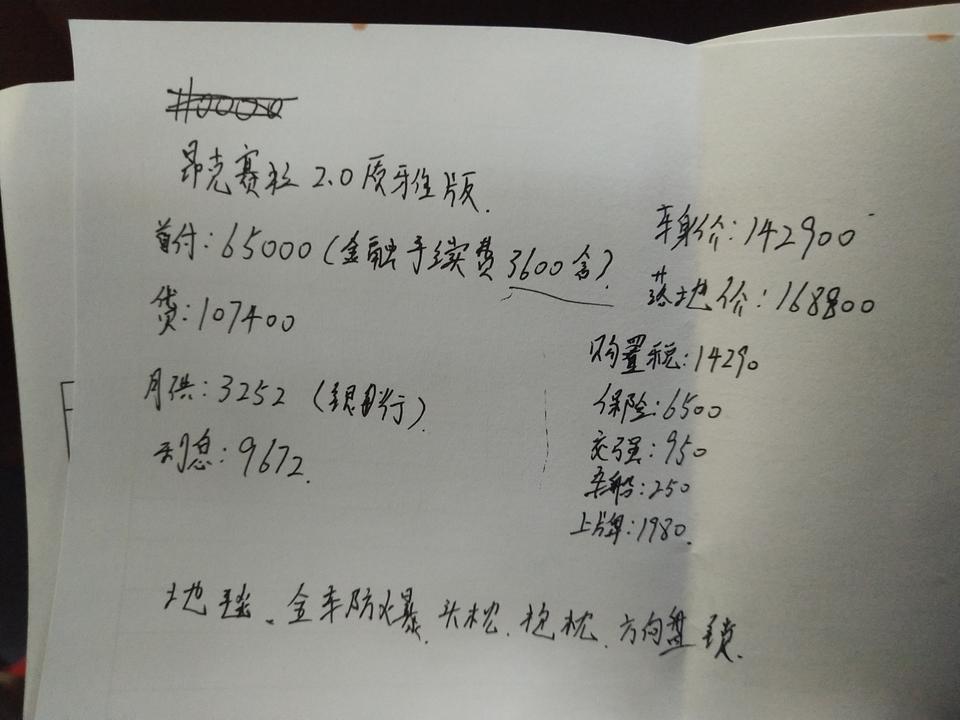 昂克赛拉 2.0 质雅版.
首付: 65000 (金融手续费 3600 含).
贷: 107400
月供: 3252 (银行).
利息: 9672.
车身价: 142900
落地价: 168800
购置税: 14290
保险: 6500
交强: 950
车船: 250
上牌: 1980.
地毯、全车防爆、头枕、抱枕、方向盘锁.